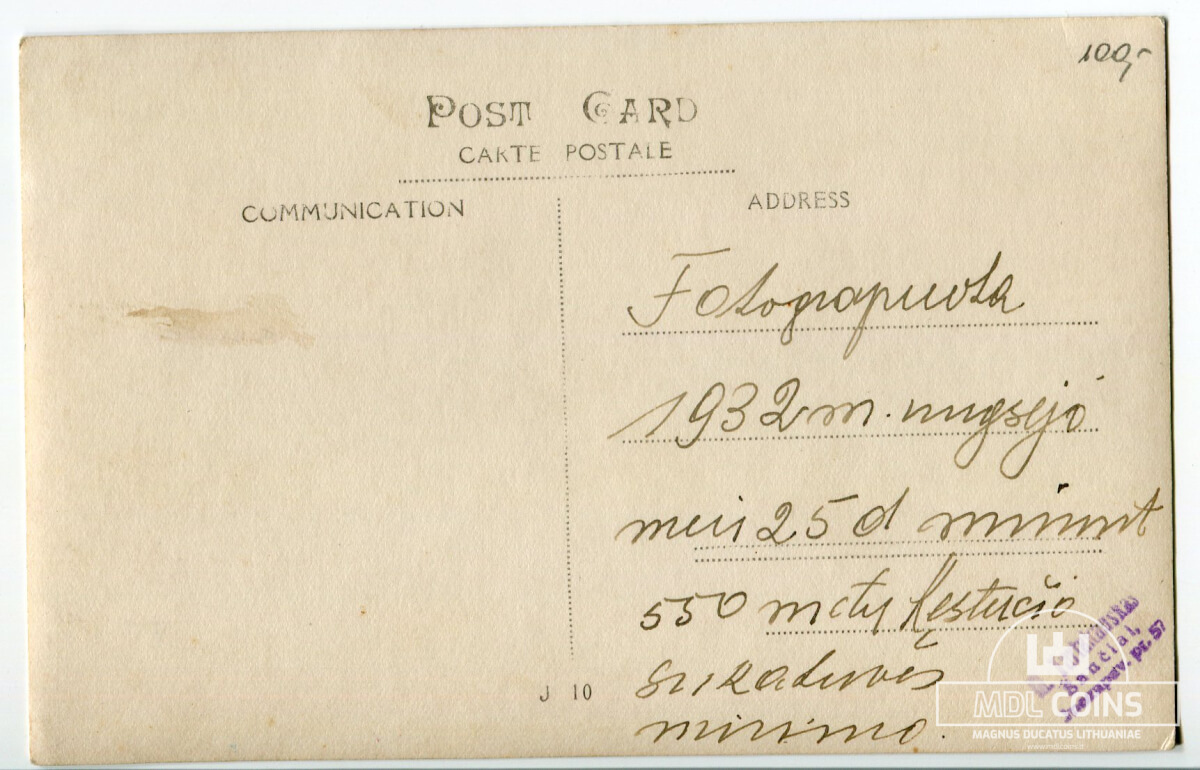 100,-
POST CARD
CARTE POSTALE
COMMUNICATION
ADDRESS
Fotograpuota
1932 m. rugsėjo
mėn 25 d minint
550 metų Ķęstučio
sukaktuvės
mirimo.
J 10
Pančiai,
Juozapav. pr. 57
MDL COINS
MAGNUS DUCATUS LITHUANIAE
www.mdlcoins.lt